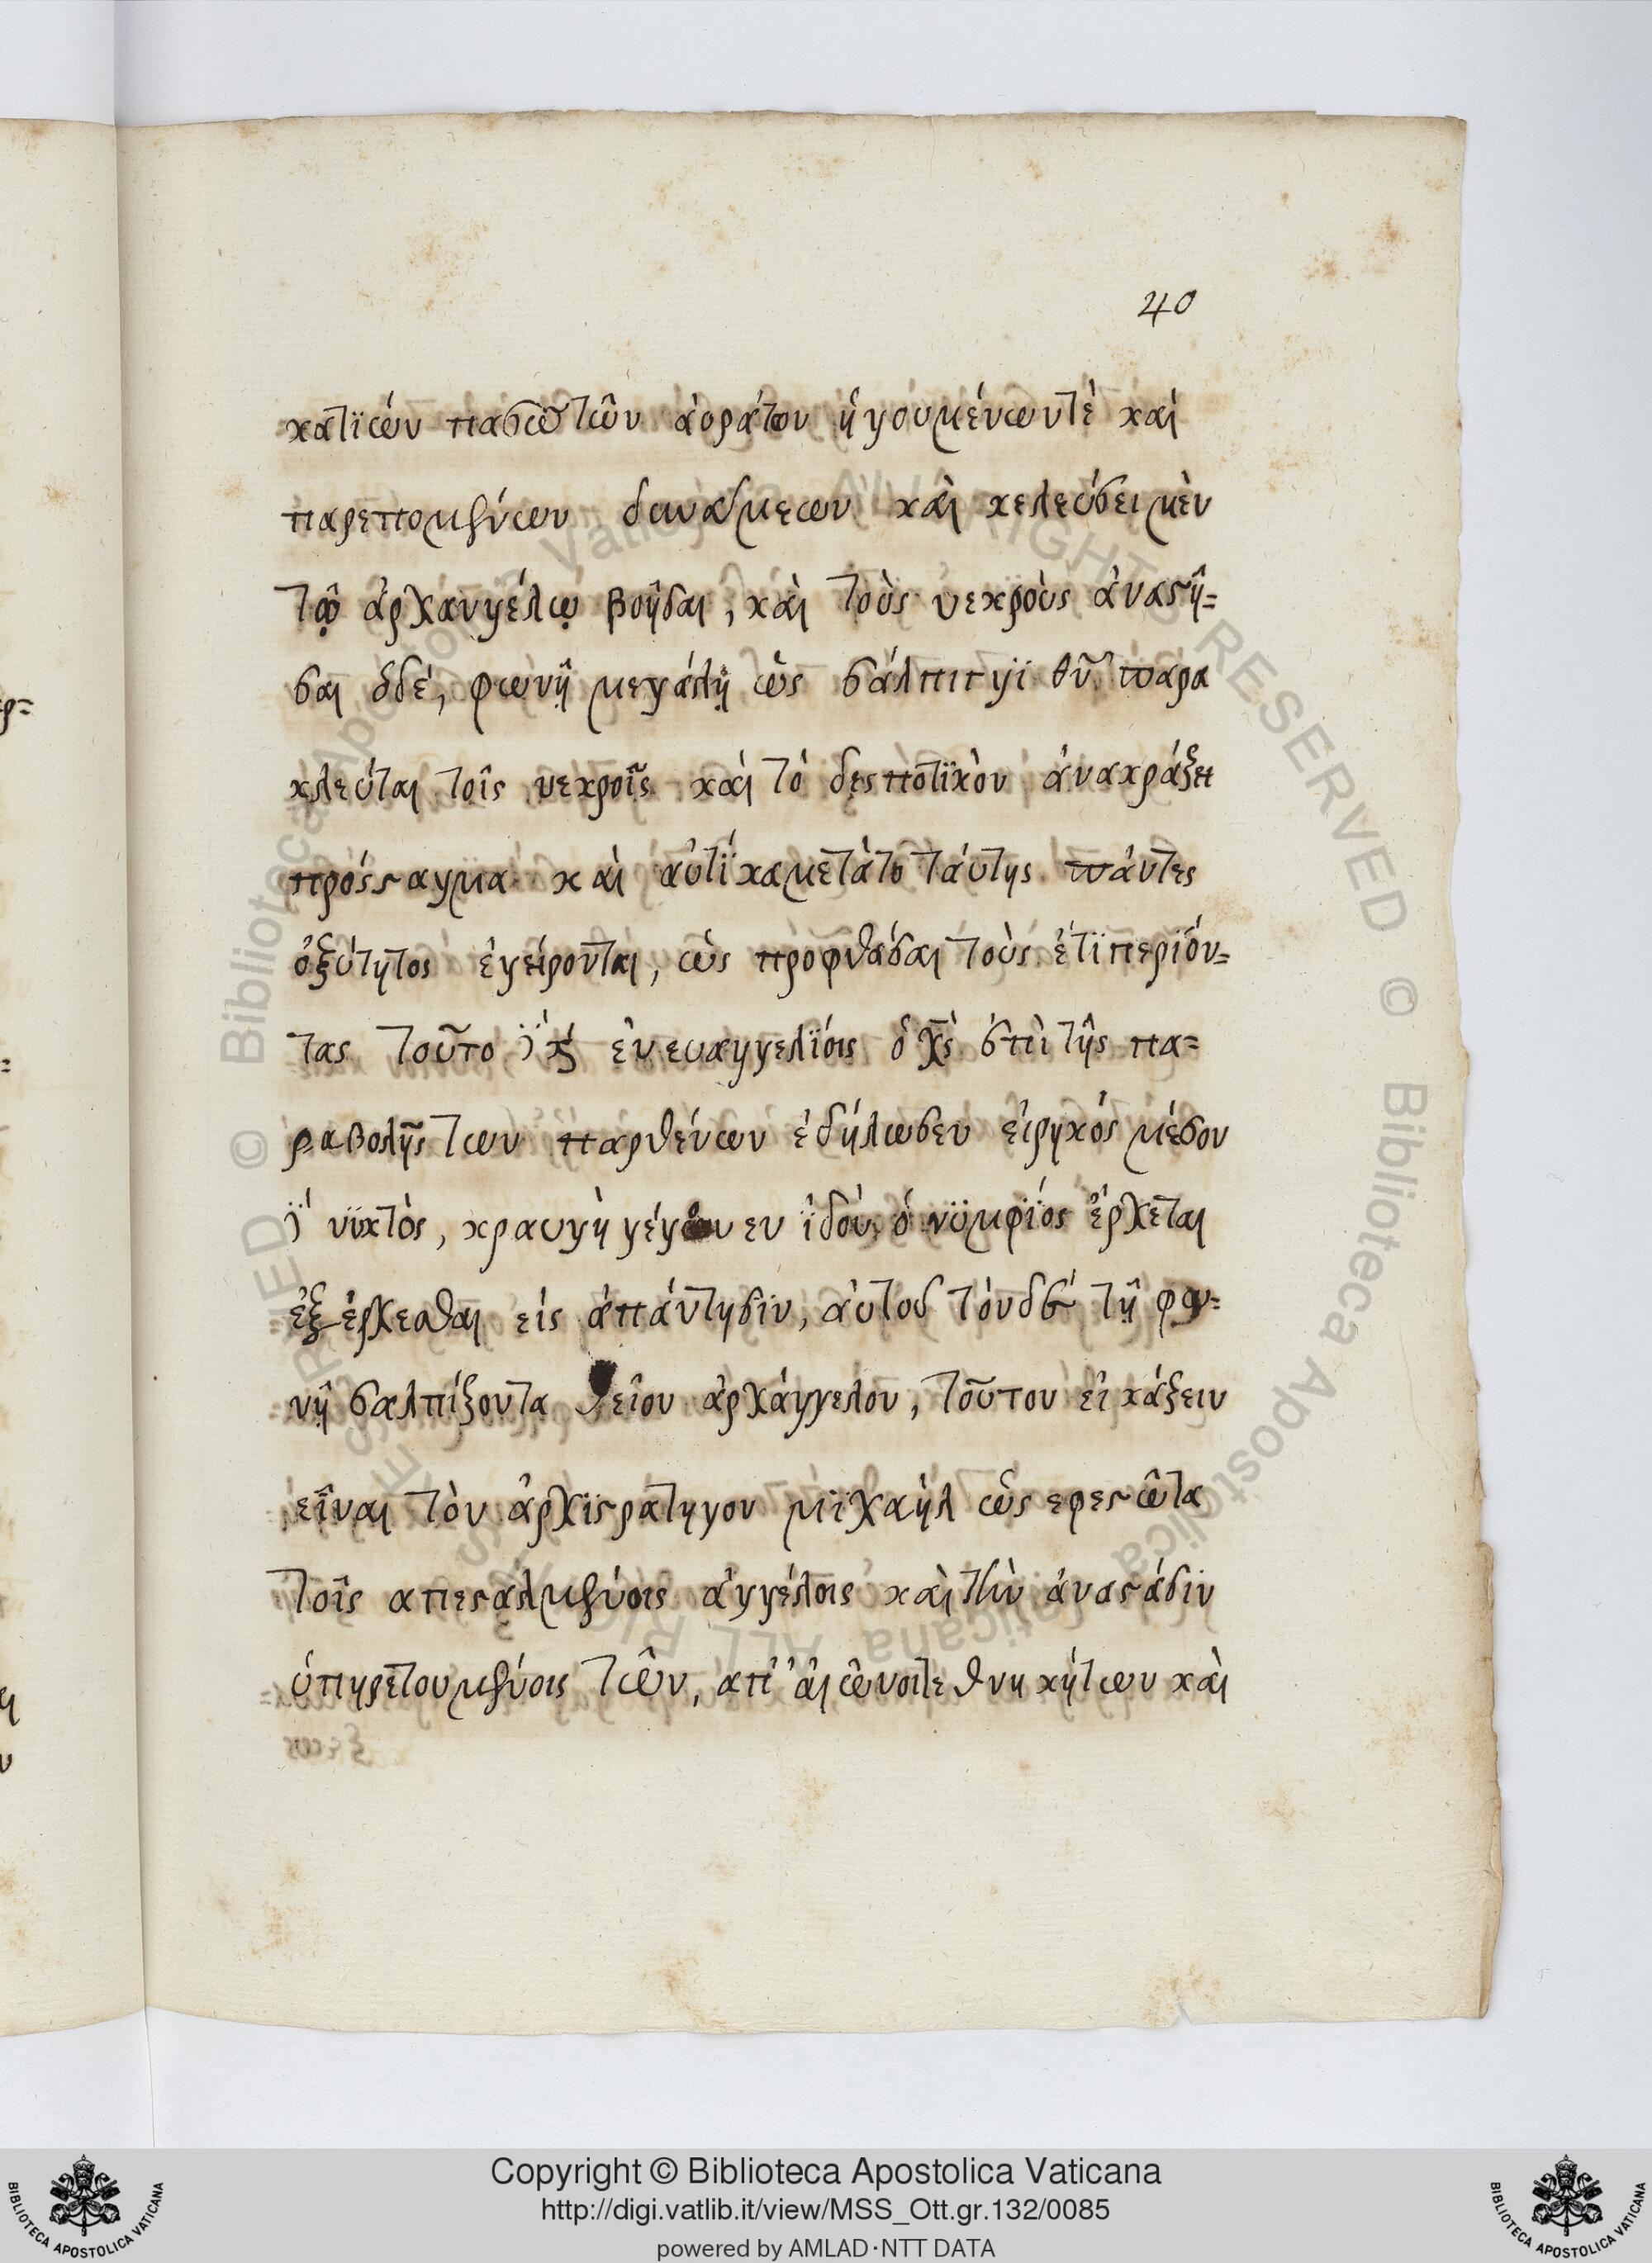 40
κατϊών πασῶ τῶν ἀοράτον ἡγουμένωντὲ καὶ
παρεπομένων δυνάμεων καὶ κελεύσει μὲν
τῷ ἀρχανγέλῳ βοῆσαι, καὶ τοὺς νεκροὺς ἀναστῆ=
σαι ὁδέ, φωνῇ μεγάλῃ ὡς σάλπιγγϊ θῦ παρα
κλεύται τοῖς νεκροῖς καὶ τὸ δεσποτϊκὸν ἀνακράξει
πρόσταγμα καὶ αὐτίκαμετὰτο ταύτης πάντες
ὀξύτητος ἐγείρονται, ὡς προφθάσαι τοὺς ἔτϊπεριόν=
τας τοῦτο ἐν ευαγγελϊοις ὁ χς ἐπὶ τῆς πα=
ραβολῆς των παρθένων ἐδήλωσεν εἰρηκός μέσον
νϋκτὸς, κραυγὴ γέγονεν ϊδού, ὁ νϋμφϊός ἔρχεται
ἐξέρχεσθαι εἰς ἀπάντησϊν, αὐτοῦ τόνδε τῇ φω=
νῇ σαλπίζοντα θεῖον ἀρχάγγελον, τοῦτον εἰκάζειν
εἶναι τὸν ἀρχϊστρατηγον μϊχαὴλ ὡς εφεστῶτα
τοῖς απεσταλμένοις ἀγγέλοις καὶ τὴν ἀναστάσϊν
ὑπηρετουμένοις τῶν, απ' αἰῶνοιτε θνηκήτων καὶ
Copyright © Biblioteca Apostolica Vaticana
http://digi.vatlib.it/view/MSS_Ott.gr.132/0085
powered by AMLAD·NTT DATA
BIBLIOTECA APOSTOLICA VATICANA
BIBLIOTECA APOSTOLICA VATICANA
© Biblioteca Apostolica Vaticana ALL RIGHTS RESERVED © Biblioteca Apostolica Vaticana ALL RIGHTS RESERVED